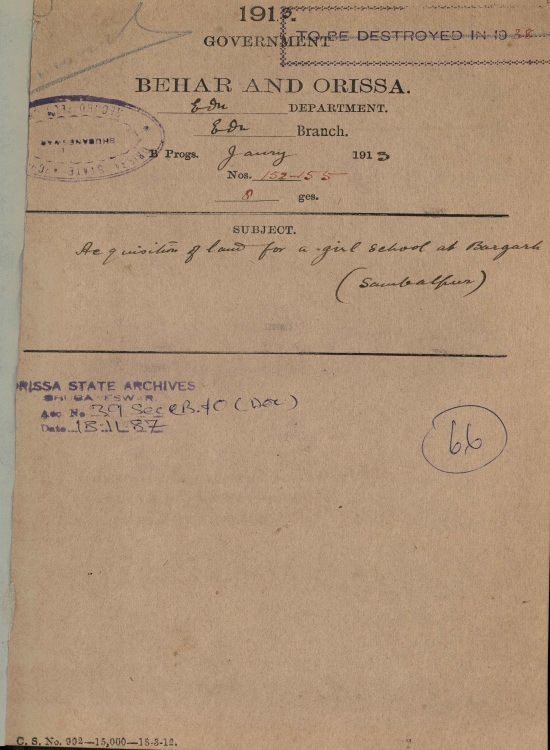 1913.
TO BE DESTROYED IN 1938
GOVERNMENT
BEHAR AND ORISSA.
Edn DEPARTMENT.
Edn Branch.
B Progs. Jaury 1913
Nos. 152-155
8 ges.
SUBJECT.
Acquisition of land for a girl school at Bargarh
(Sambalpur)
ORISSA STATE ARCHIVES
BHUBANESWAR
Acc No 39 Sec
Date 18.11.87
66
C. S. No. 992—15,000—18-3-12.